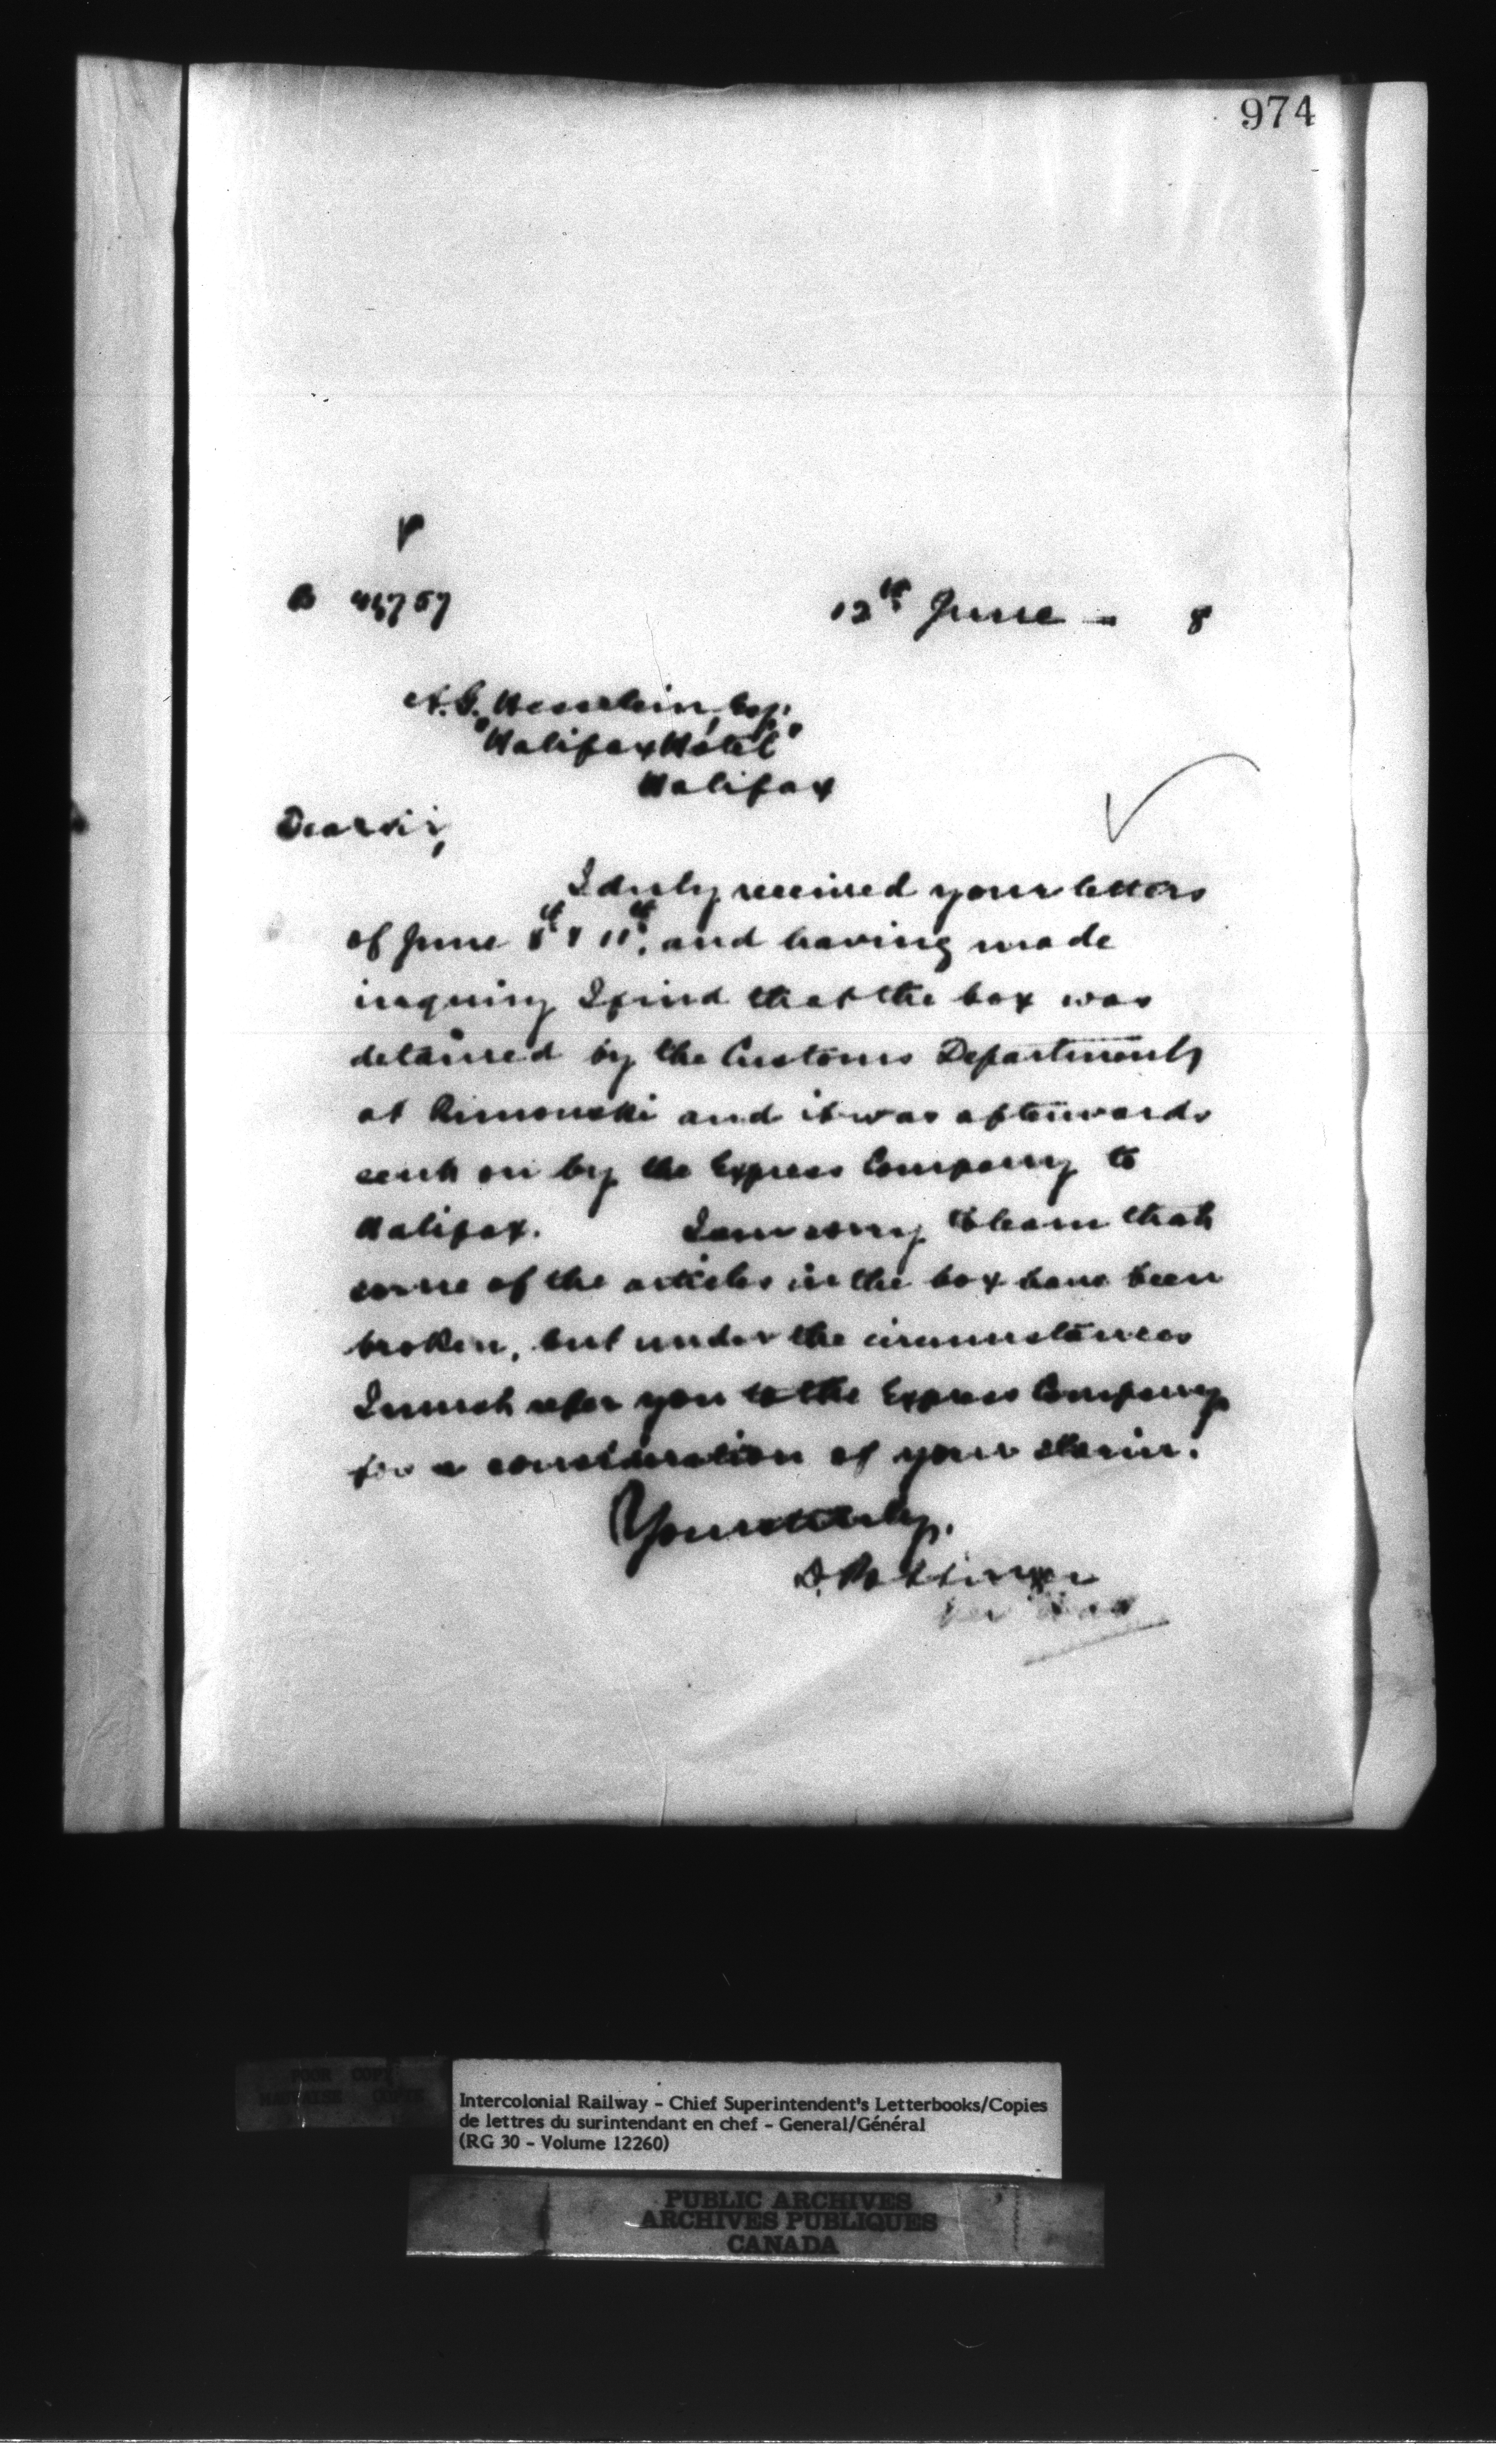 974
B
12th June - 8
A. G. Hesslein, Esq.
"Halifax Hotel"
Halifax
Dear Sir,
I duly received your letters
of June 8th & 11th, and having made
inquiry I find that the box was
detained by the Customs Department
at Rimouski and it was afterwards
sent on by the Express Company to
Halifax. I am sorry to learn that
some of the articles in the box have been
broken, but under the circumstances
I must refer you to the Express Company
for a consideration of your claim.
Yours truly,
D. Pottinger
POOR COPY
MAUVAISE COPIE
Intercolonial Railway - Chief Superintendent's Letterbooks/Copies
de lettres du surintendant en chef - General/Général
(RG 30 - Volume 12260)
PUBLIC ARCHIVES
ARCHIVES PUBLIQUES
CANADA